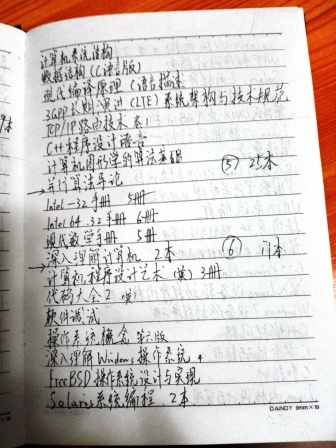 计算机系统结构
数据结构(C语言版)
现代编译原理 C语言描述
3GPP长期演进(LTE)系统架构与技术规范
TCP/IP路由技术 卷1
C++程序设计语言
计算机图形学的算法基础
→并行算法导论
⑤ 25本
Intel-32手册 5册
Intel 64.32手册 6册
现代数学手册 5册
深入理解计算机 2本
⑥ 17本
→计算机程序设计艺术(英)3册
代码大全2(英)
软件调试
操作系统概念 第六版
深入理解Windows操作系统 4
FreeBSD操作系统设计与实现
Solaris系统编程 2本
DAINDY 9mm×19
本